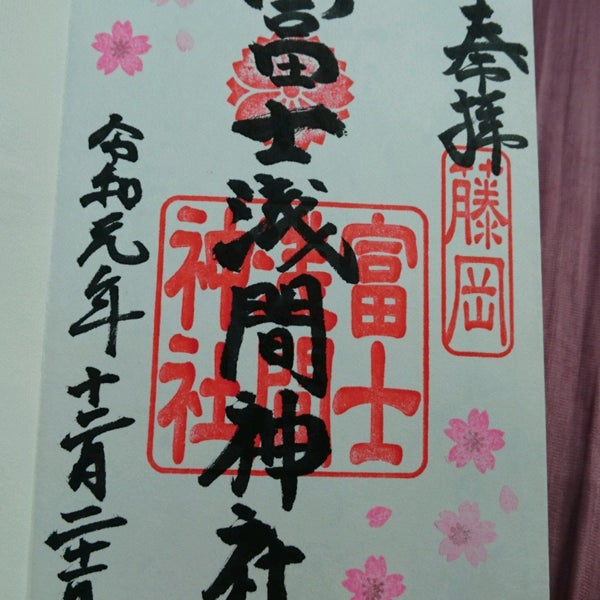 奉拝
藤岡
富士浅間神社
富士
浅間
神社
令和元年十二月二十二日